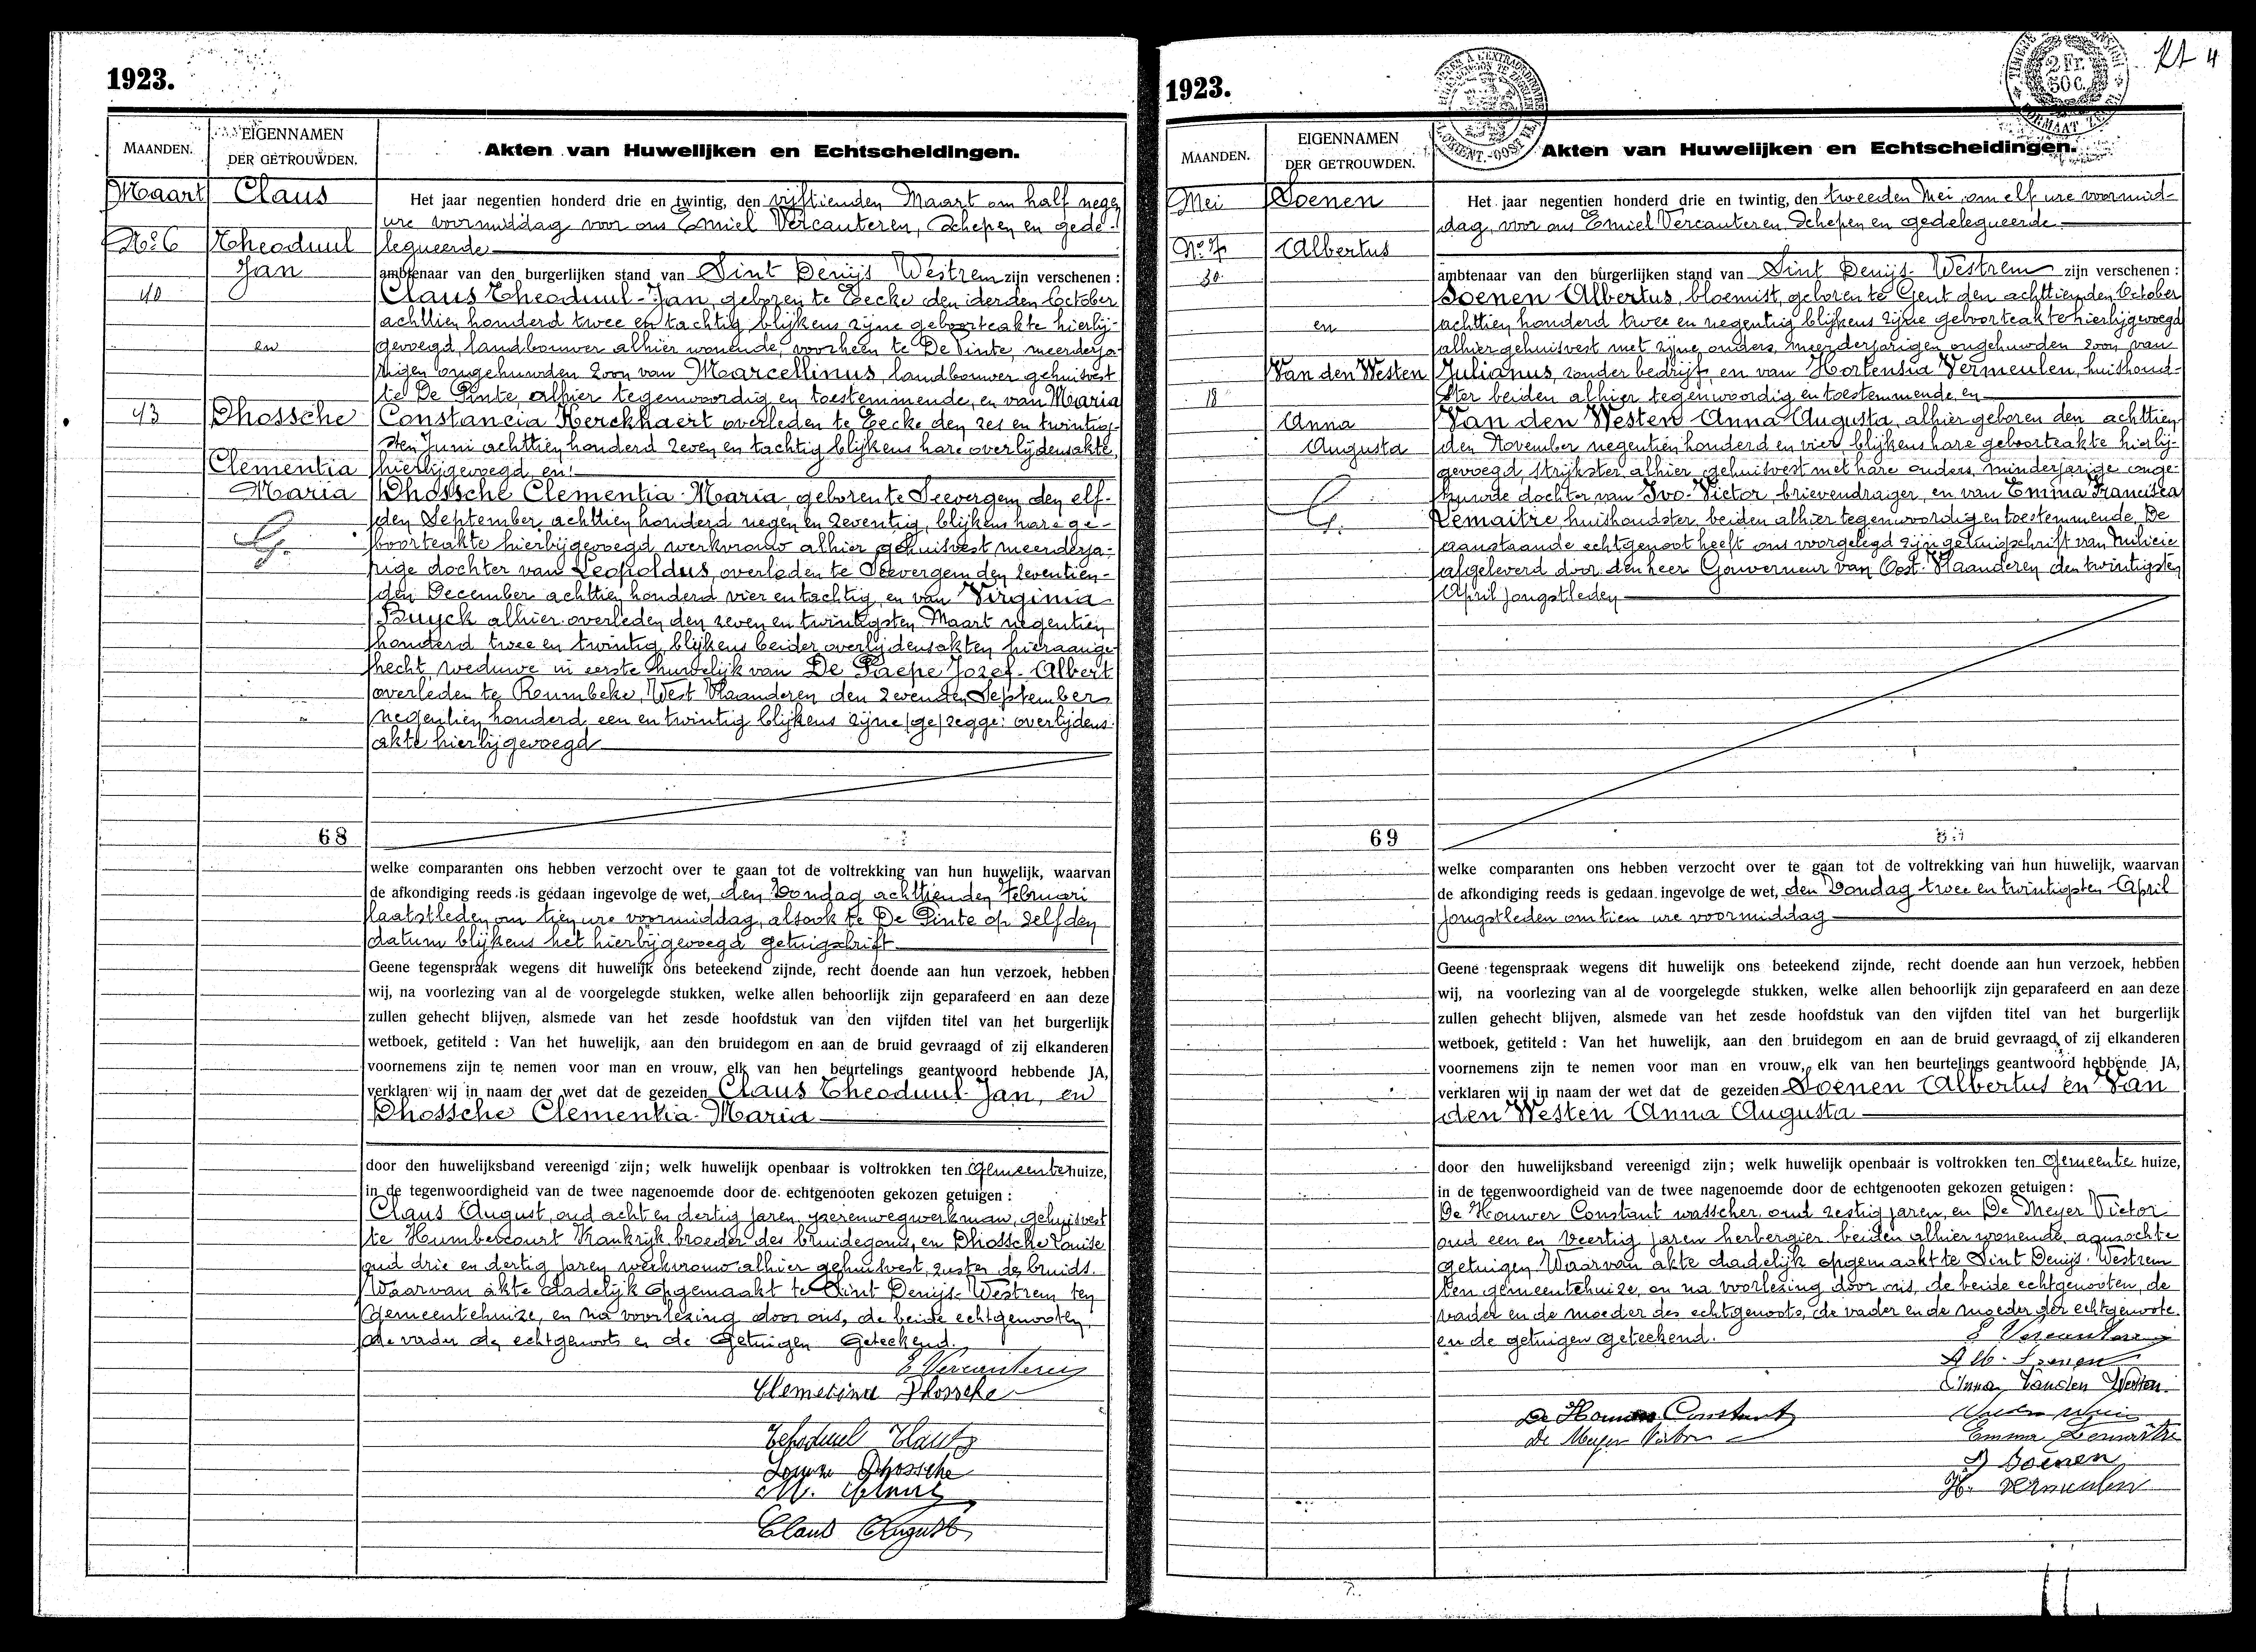 1923.
MAANDEN.
EIGENNAMEN
DER GETROUWDEN.
Akten van Huwelijken en Echtscheidingen.
Maart
Claus
Het jaar negentien honderd drie en twintig, den vijftienden Maart om half negen
ure voormiddag voor ons Emiel Vercauteren, Schepen en gede-
No 6
Theoduul
legueerde
Jan
ambtenaar van den burgerlijken stand van Sint Denijs Westrem zijn verschenen :
40
Claus Theoduul-Jan, geboren te Eecke den derden October
achttien honderd twee en tachtig blijkens zijne geboorteakte hierbij-
en
gevoegd, landbouwer alhier wonende, voorheen te De Pinte, meerderja-
rigen ongehuwden zoon van Marcellinus, landbouwer gehuisvest
te De Pinte, alhier tegenwoordig en toestemmende, en van Maria
43
Dhossche
Constancia Kerckhaert overleden te Eecke den zes en twintig-
sten Juni achttien honderd zeven en tachtig blijkens hare overlijdensakte,
Clementia
hierbijgevoegd, en:
Maria
Dhossche Clementia-Maria, geboren te Seevergem den elf-
den September achttien honderd negen en zeventig, blijkens hare ge-
boorteakte hierbijgevoegd werkvrouw alhier gehuisvest meerderja-
rige dochter van Leopoldus, overleden te Seevergem den zeventien-
den December achttien honderd vier en tachtig, en van Virginia
Buyck alhier overleden den zeven en twintigsten Maart negentien
honderd twee en twintig, blijkens beider overlijdensakten hieraange-
hecht, weduwe in eerste huwelijk van De Paepe Jozef-Albert
overleden te Rumbeke, West Vlaanderen den zevenden September
negentien honderd een en twintig blijkens zijne (ge) zegge: overlijdens
akte hierbijgevoegd
68
welke comparanten ons hebben verzocht over te gaan tot de voltrekking van hun huwelijk, waarvan
de afkondiging reeds is gedaan ingevolge de wet, den Zondag achttienden Februari
laatstleden om tien ure voormiddag, alsook te De Pinte op zelfden
datum blijkens het hierbijgevoegd getuigschrift
Geene tegenspraak wegens dit huwelijk ons beteekend zijnde, recht doende aan hun verzoek, hebben
wij, na voorlezing van al de voorgelegde stukken, welke allen behoorlijk zijn geparafeerd en aan deze
zullen gehecht blijven, alsmede van het zesde hoofdstuk van den vijfden titel van het burgerlijk
wetboek, getiteld : Van het huwelijk, aan den bruidegom en aan de bruid gevraagd of zij elkanderen
voornemens zijn te nemen voor man en vrouw, elk van hen beurtelings geantwoord hebbende JA,
verklaren wij in naam der wet dat de gezeiden Claus Theoduul-Jan, en
Dhossche Clementia-Maria
door den huwelijksband vereenigd zijn; welk huwelijk openbaar is voltrokken ten Gemeentehuize,
in de tegenwoordigheid van de twee nagenoemde door de echtgenooten gekozen getuigen :
Claus August, oud acht en dertig jaren, yzerenwegwerkman, gehuisvest
te Humbercourt Frankrijk, broeder des bruidegoms, en Dhossche Louise
oud drie en dertig jaren werkvrouw alhier gehuisvest, zuster der bruid.
Waarvan akte dadelijk opgemaakt te Sint Denijs-Westrem ten
Gemeentehuize, en na voorlezing door ons, de beide echtgenooten,
de vader des echtgenoots en de Getuigen Geteekend.
E Vercauteren
Clementine Dhossche
Theoduul Claus
Louise Dhossche
M. Claus
Claus August
1923.
2 Fr.
50 c.
MAANDEN.
EIGENNAMEN
DER GETROUWDEN.
Akten van Huwelijken en Echtscheidingen.
Mei
Soenen
Het jaar negentien honderd drie en twintig, den tweeden Mei, om elf ure voormid-
dag, voor ons Emiel Vercauteren Schepen en gedelegueerde
No 7
Albertus
30
ambtenaar van den burgerlijken stand van Sint Denijs-Westrem zijn verschenen :
Soenen Albertus, bloemist, geboren te Gent den achttienden October
en
achttien honderd twee en negentig blijkens zijne geboorteakte hierbijgevoegd
alhier gehuisvest met zijne ouders, meerderjarigen ongehuwden zoon van
Van den Westen
Julianus, zonder bedrijf, en van Hortensia Vermeulen, huishoud-
18
ster beiden alhier tegenwoordig en toestemmende, en
Anna
Van den Westen Anna-Augusta, alhier geboren den achttien-
Augusta
den November negentien honderd en vier, blijkens hare geboorteakte hierbij-
gevoegd strijkster alhier gehuisvest met hare ouders, minderjarige onge-
huwde dochter van Ivo-Victor, brievendrager, en van Emma Francisca
Lemaitre huishoudster, beiden alhier tegenwoordig en toestemmende. De
aanstaande echtgenoot heeft ons voorgelegd zijn getuigschrift van Milicie
afgeleverd door den heer Gouverneur van Oost-Vlaanderen den twintigsten
April jongstleden
69
welke comparanten ons hebben verzocht over te gaan tot de voltrekking van hun huwelijk, waarvan
de afkondiging reeds is gedaan ingevolge de wet, den Zondag twee en twintigsten April
jongstleden om tien ure voormiddag
Geene tegenspraak wegens dit huwelijk ons beteekend zijnde, recht doende aan hun verzoek, hebben
wij, na voorlezing van al de voorgelegde stukken, welke allen behoorlijk zijn geparafeerd en aan deze
zullen gehecht blijven, alsmede van het zesde hoofdstuk van den vijfden titel van het burgerlijk
wetboek, getiteld : Van het huwelijk, aan den bruidegom en aan de bruid gevraagd of zij elkanderen
voornemens zijn te nemen voor man en vrouw, elk van hen beurtelings geantwoord hebbende JA,
verklaren wij in naam der wet dat de gezeiden Soenen Albertus en Van
den Westen Anna Augusta
door den huwelijksband vereenigd zijn; welk huwelijk openbaar is voltrokken ten Gemeente huize,
in de tegenwoordigheid van de twee nagenoemde door de echtgenooten gekozen getuigen :
De Houwer Constant wasscher, oud zestig jaren, en De Meyer Victor
oud een en veertig jaren herbergier beiden alhier wonende, aanzochte
getuigen Waarvan akte dadelijk opgemaakt te Sint Denijs-Westrem
ten gemeentehuize, en na voorlezing door ons, de beide echtgenooten, de
vader en de moeder des echtgenoots, de vader en de moeder der echtgenoote
en de getuigen geteekend.
E Vercauteren
Alb. Soenen
Anna Vanden Westen
De Houwer Constant
De Meyer Victor
Emma Lemaître
J Soenen
H. Vermeulen